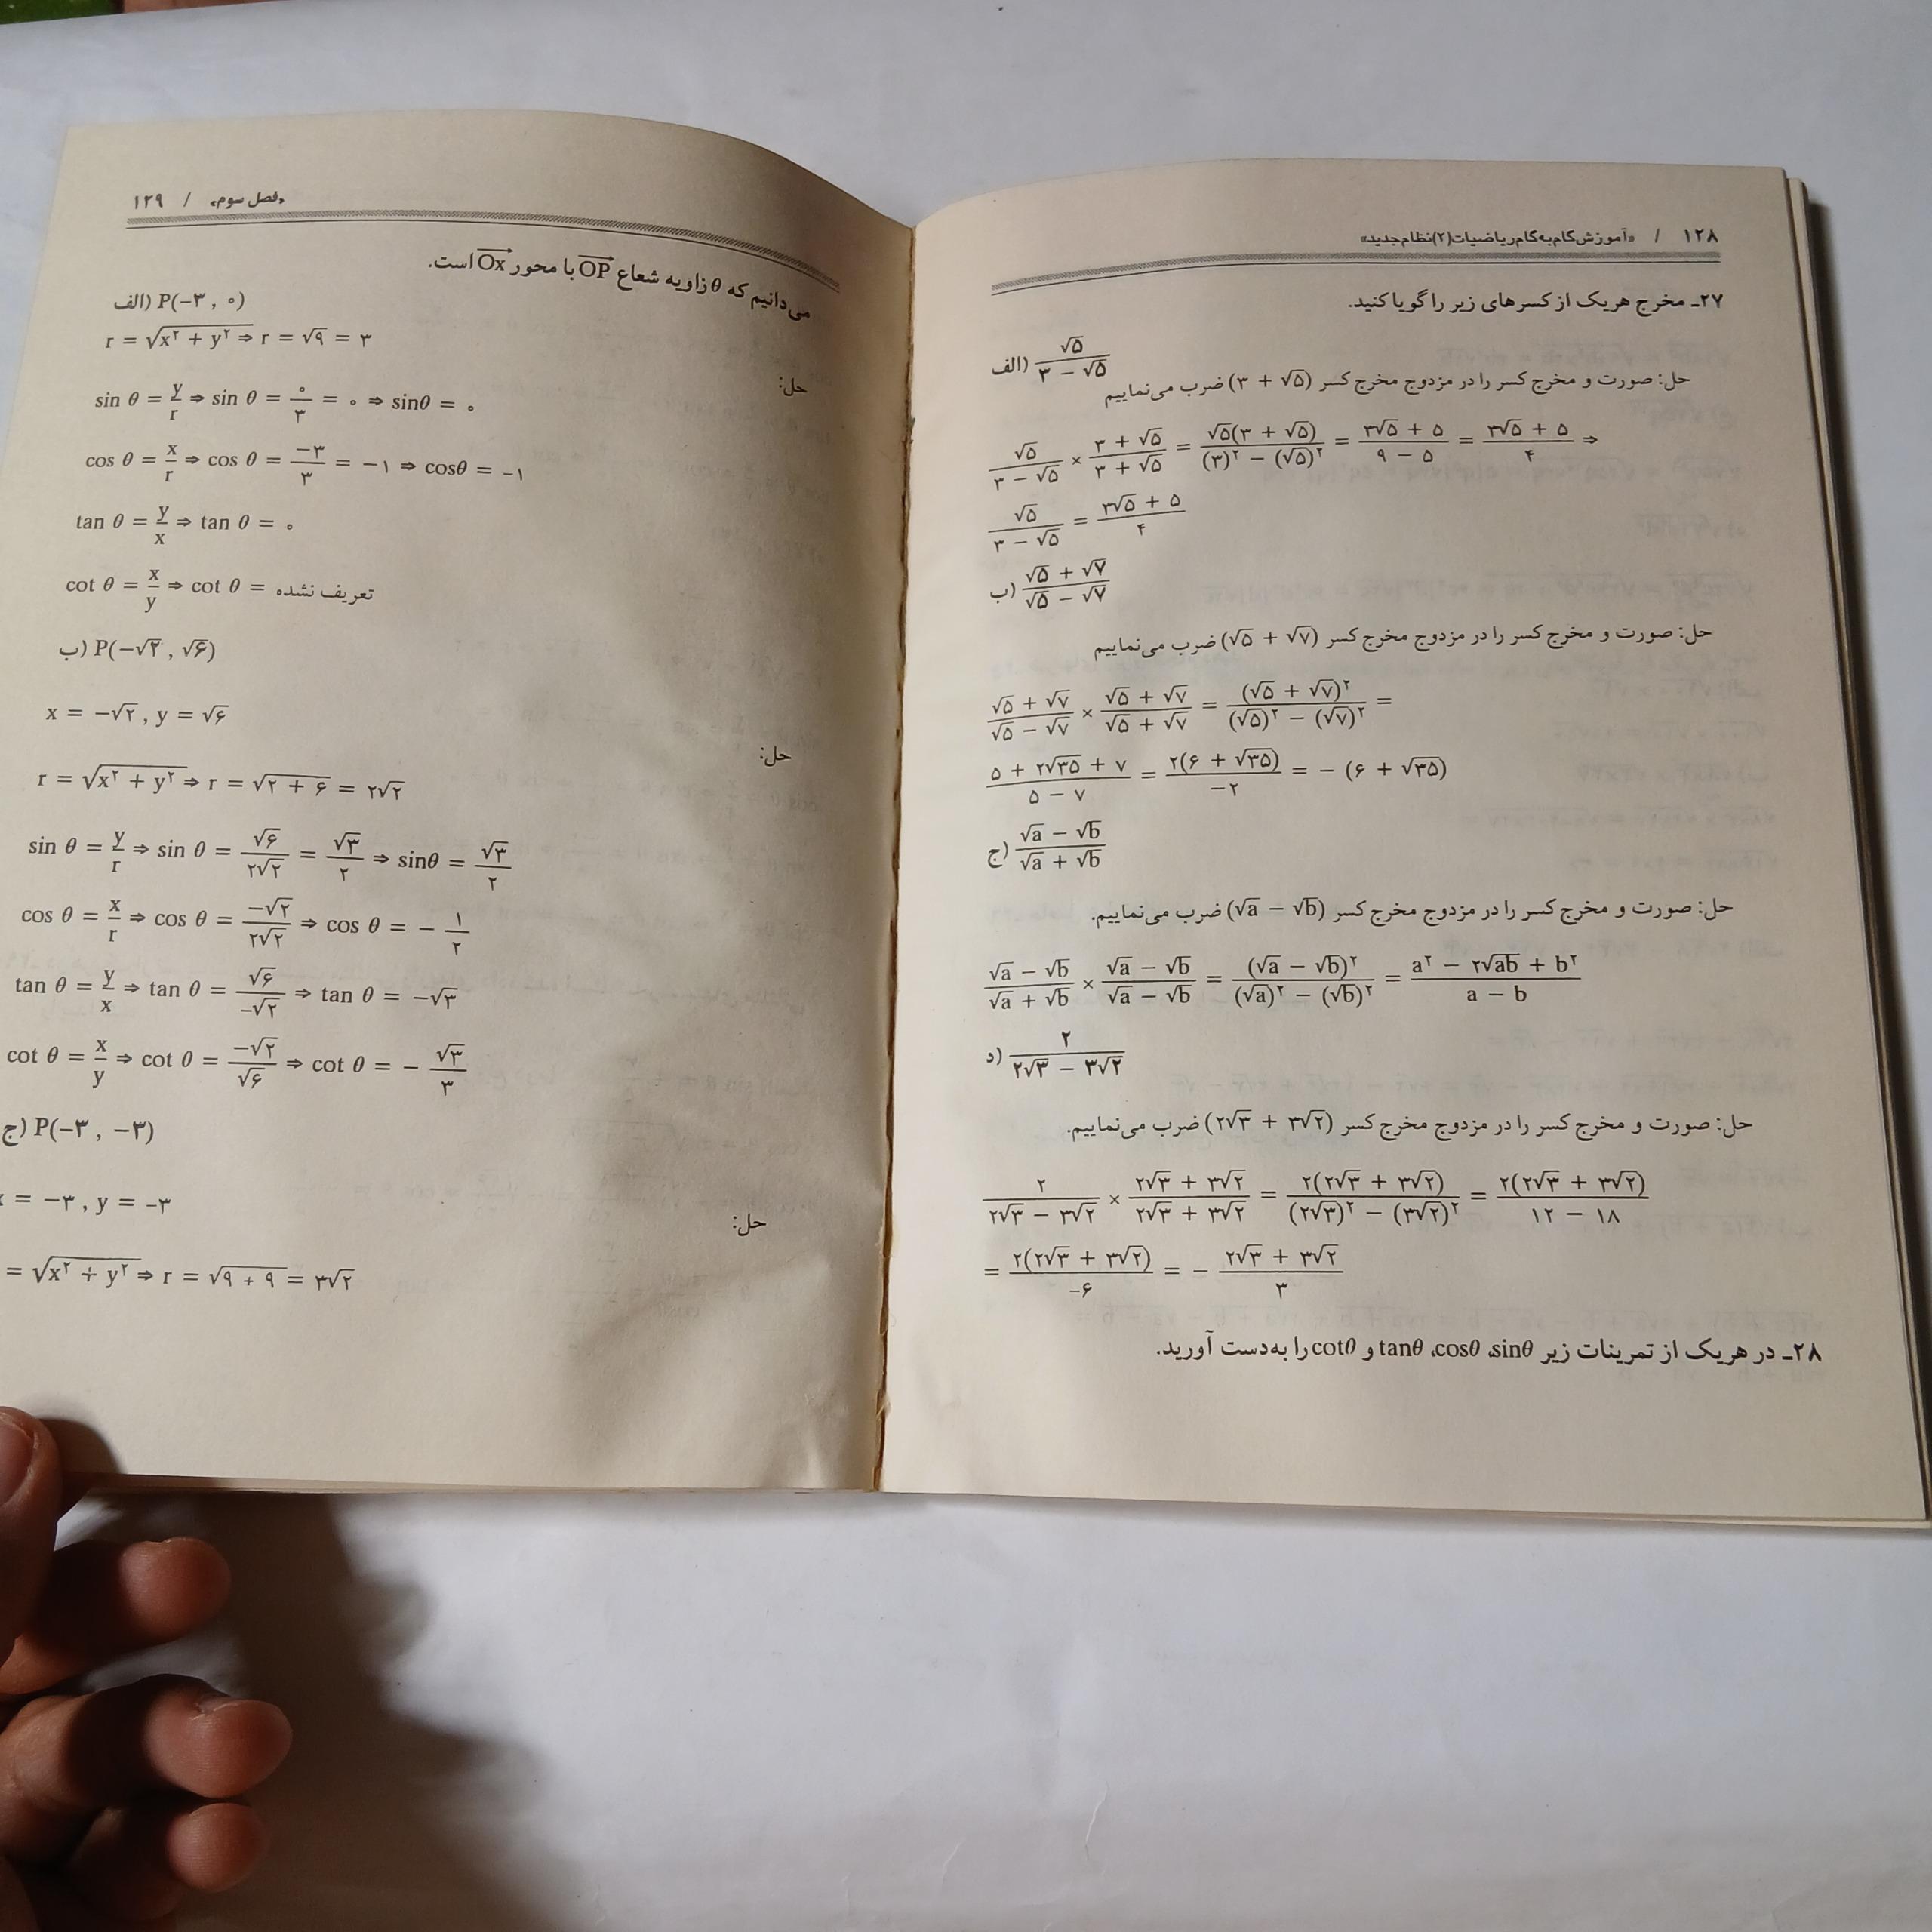 ۱۲۸ / «آموزش گام به گام ریاضیات (۲) نظام جدید»
۲۷ـ مخرج هریک از کسرهای زیر را گویا کنید.
الف) √۵ / (۳ − √۵)
حل: صورت و مخرج کسر را در مزدوج مخرج کسر (۳ + √۵) ضرب می‌نماییم
√۵ / (۳ − √۵) × (۳ + √۵) / (۳ + √۵) = √۵(۳ + √۵) / ((۳)² − (√۵)²) = (۳√۵ + ۵) / (۹ − ۵) = (۳√۵ + ۵) / ۴ ⇒
√۵ / (۳ − √۵) = (۳√۵ + ۵) / ۴
ب) (√۵ + √۷) / (√۵ − √۷)
حل: صورت و مخرج کسر را در مزدوج مخرج کسر (√۵ + √۷) ضرب می‌نماییم
(√۵ + √۷) / (√۵ − √۷) × (√۵ + √۷) / (√۵ + √۷) = (√۵ + √۷)² / ((√۵)² − (√۷)²) =
(۵ + ۲√۳۵ + ۷) / (۵ − ۷) = ۲(۶ + √۳۵) / −۲ = − (۶ + √۳۵)
ج) (√a − √b) / (√a + √b)
حل: صورت و مخرج کسر را در مزدوج مخرج کسر (√a − √b) ضرب می‌نماییم.
(√a − √b) / (√a + √b) × (√a − √b) / (√a − √b) = (√a − √b)² / ((√a)² − (√b)²) = (a² − ۲√ab + b²) / (a − b)
د) ۲ / (۲√۳ − ۳√۲)
حل: صورت و مخرج کسر را در مزدوج مخرج کسر (۲√۳ + ۳√۲) ضرب می‌نماییم.
۲ / (۲√۳ − ۳√۲) × (۲√۳ + ۳√۲) / (۲√۳ + ۳√۲) = ۲(۲√۳ + ۳√۲) / ((۲√۳)² − (۳√۲)²) = ۲(۲√۳ + ۳√۲) / (۱۲ − ۱۸)
= ۲(۲√۳ + ۳√۲) / −۶ = − (۲√۳ + ۳√۲) / ۳
۲۸ـ در هریک از تمرینات زیر sinθ، cosθ، tanθ و cotθ را به‌دست آورید.
«فصل سوم» / ۱۲۹
می‌دانیم که θ زاویه شعاع OP با محور Ox است.
الف) P(−۳ , ۰)
r = √(x² + y²) ⇒ r = √۹ = ۳
حل:
sin θ = y/r ⇒ sin θ = ۰/۳ = ۰ ⇒ sinθ = ۰
cos θ = x/r ⇒ cos θ = −۳/۳ = −۱ ⇒ cosθ = −۱
tan θ = y/x ⇒ tan θ = ۰
cot θ = x/y ⇒ cot θ = تعریف نشده
ب) P(−√۲ , √۶)
x = −√۲ , y = √۶
حل:
r = √(x² + y²) ⇒ r = √(۲ + ۶) = ۲√۲
sin θ = y/r ⇒ sin θ = √۶/۲√۲ = √۳/۲ ⇒ sinθ = √۳/۲
cos θ = x/r ⇒ cos θ = −√۲/۲√۲ ⇒ cos θ = − ۱/۲
tan θ = y/x ⇒ tan θ = √۶/−√۲ ⇒ tan θ = −√۳
cot θ = x/y ⇒ cot θ = −√۲/√۶ ⇒ cot θ = − √۳/۳
ج) P(−۳ , −۳)
= −۳ , y = −۳
حل:
= √(x² + y²) ⇒ r = √(۹ + ۹) = ۳√۲